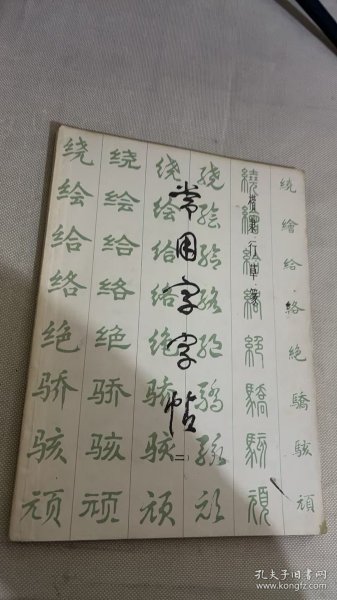 常用字字帖
二
绕绘给络绝骄骇顽
绕绘给络绝骄骇顽
绕绘给络绝骄骇顽
绕绘给络绝骄骇顽
繞繪給絡絕驕駭頑
繞繪給絡絕驕駭頑
行草·篆
孔夫子旧书网